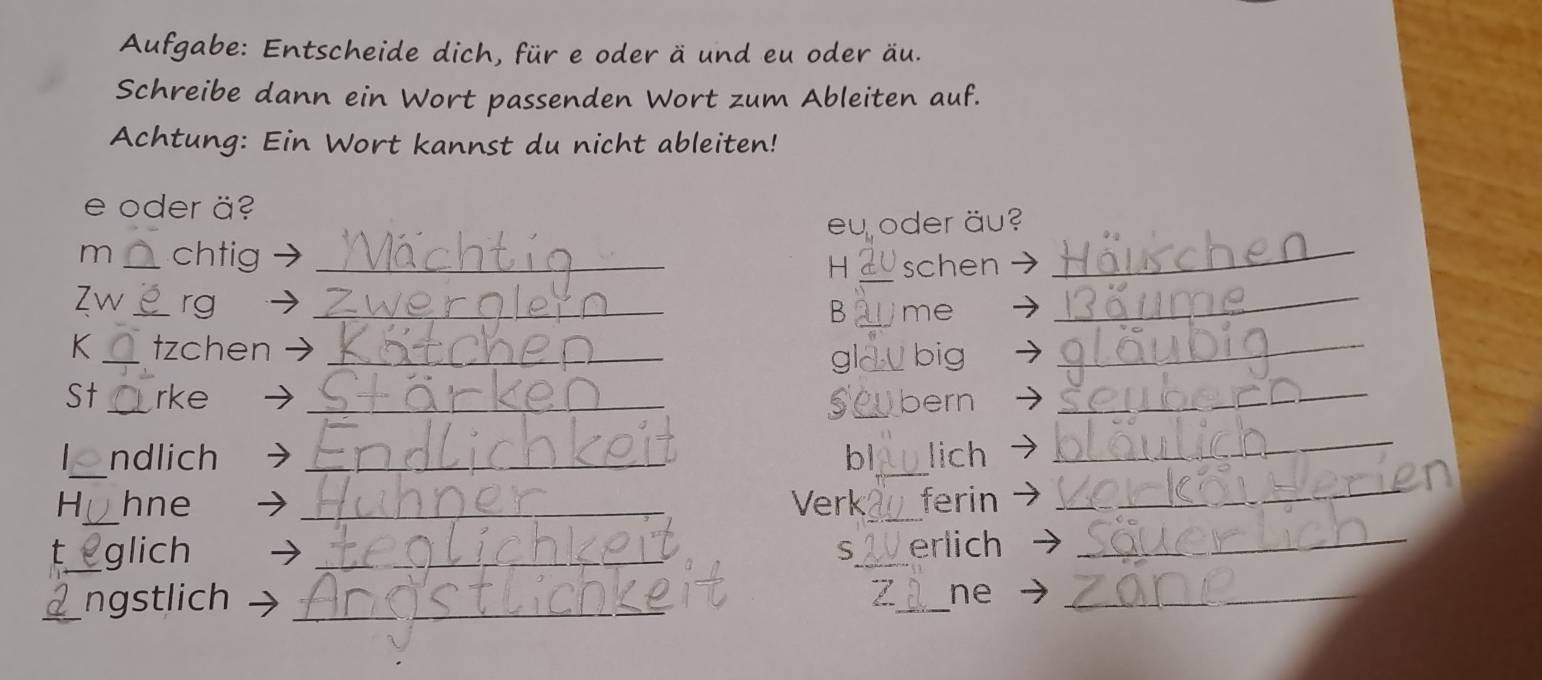 Aufgabe: Entscheide dich, für e oder ä und eu oder äu.
Schreibe dann ein Wort passenden Wort zum Ableiten auf.
Achtung: Ein Wort kannst du nicht ableiten!
e oder ä?
mächtig → Mächtig
Zwerg → Zwerglein
Kätzchen → Kätchen
Stärke → Stärken
lendlich → Endlichkeit
Huhne → Huhner
teglich → teglichkeit
ängstlich → Angstlichkeit
eu oder äu?
Häuschen → Häuschen
Bäume → Bäume
gläubig → gläubig
seubern → seubern
bläulich → bläulich
Verkäuferin →
säuerlich → säuerlich
Zäne → zäne